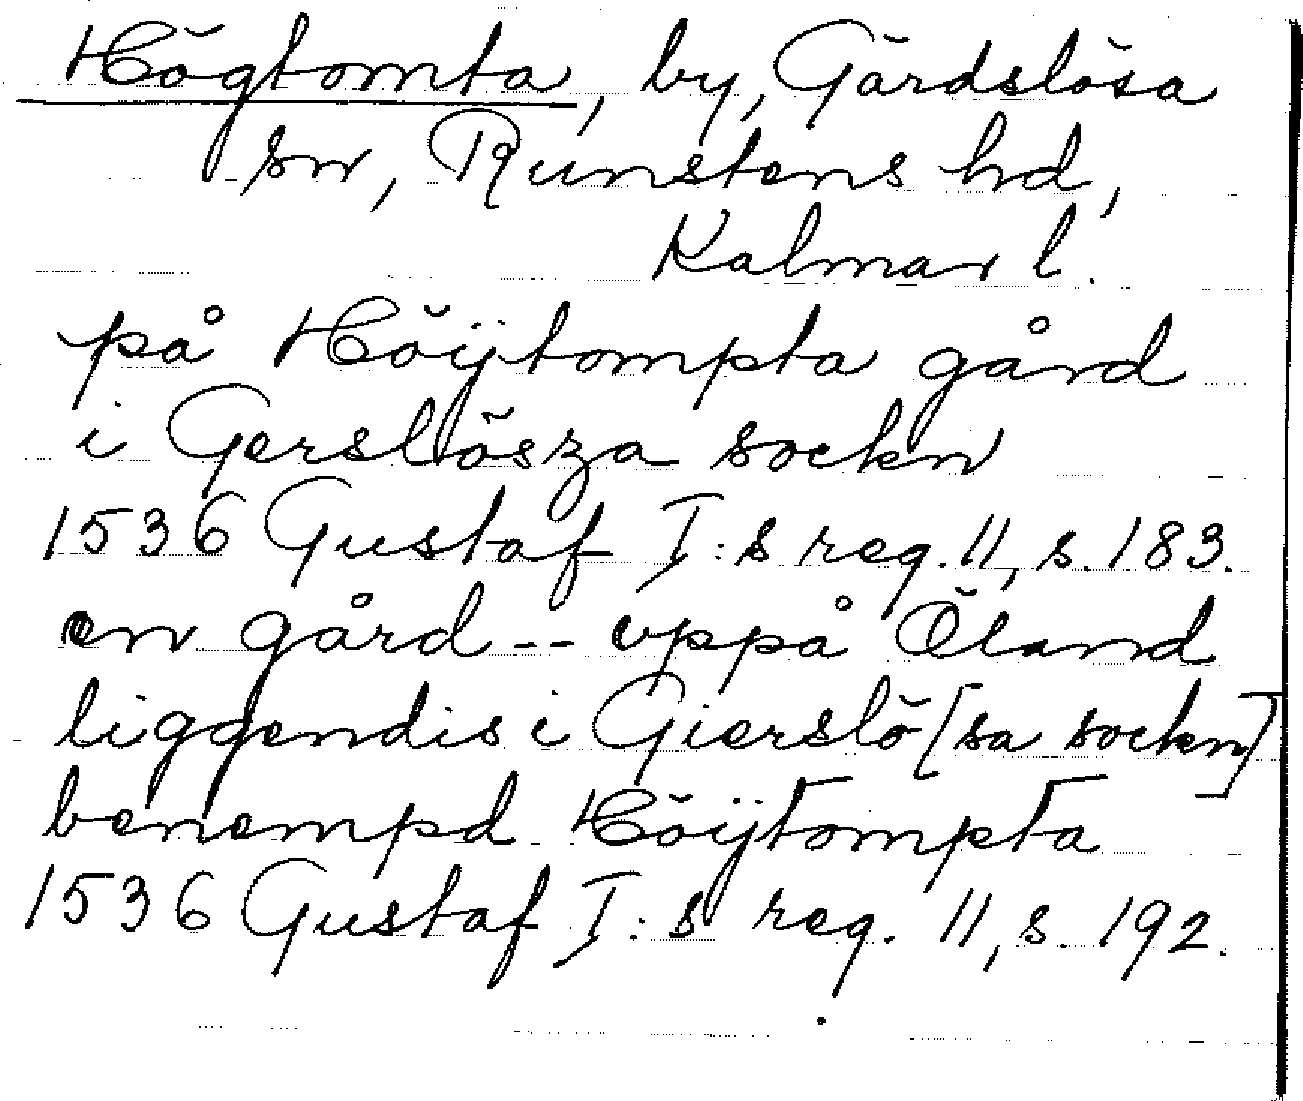 Högtomta, by, Gärdslösa
sn, Runstens hd,
Kalmar l.
på Höÿtompta gård
i Gerslösza sockn
1536 Gustaf I:s reg. 11, s. 183.
en gård -- uppå Öland
liggendis i Gierslö [sa sockn]
benempd Höÿtompta
1536 Gustaf I:s reg. 11, s. 192.